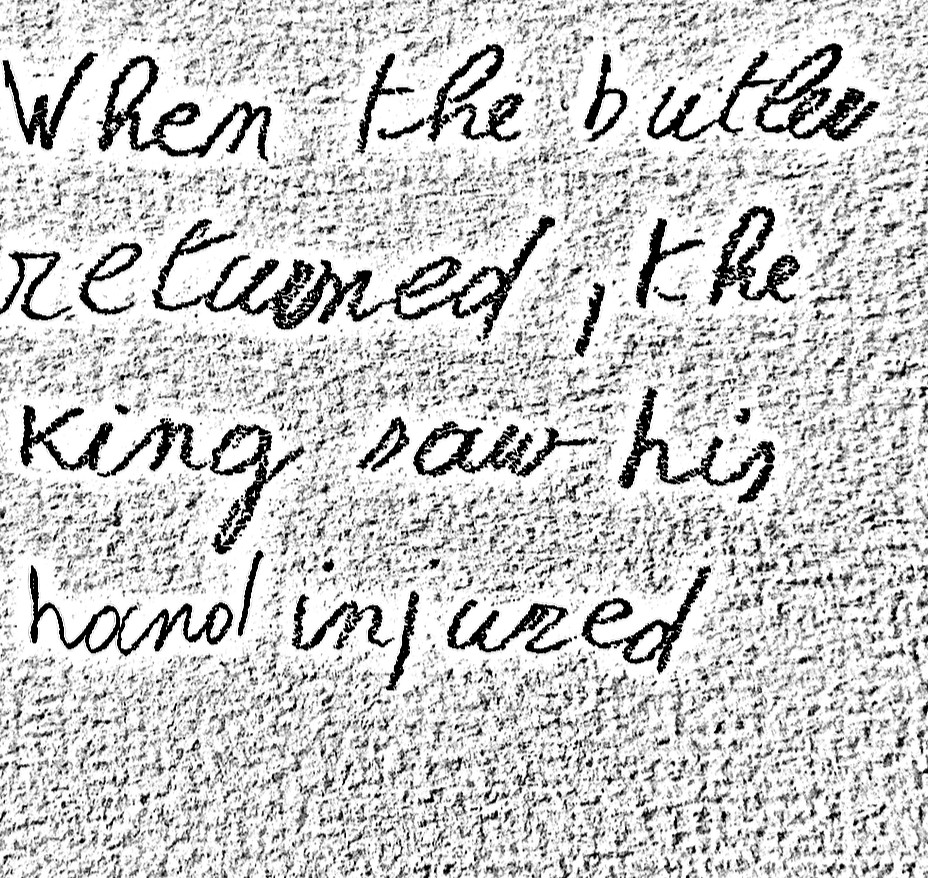 When the butler
returned, the
king saw his
hand injured